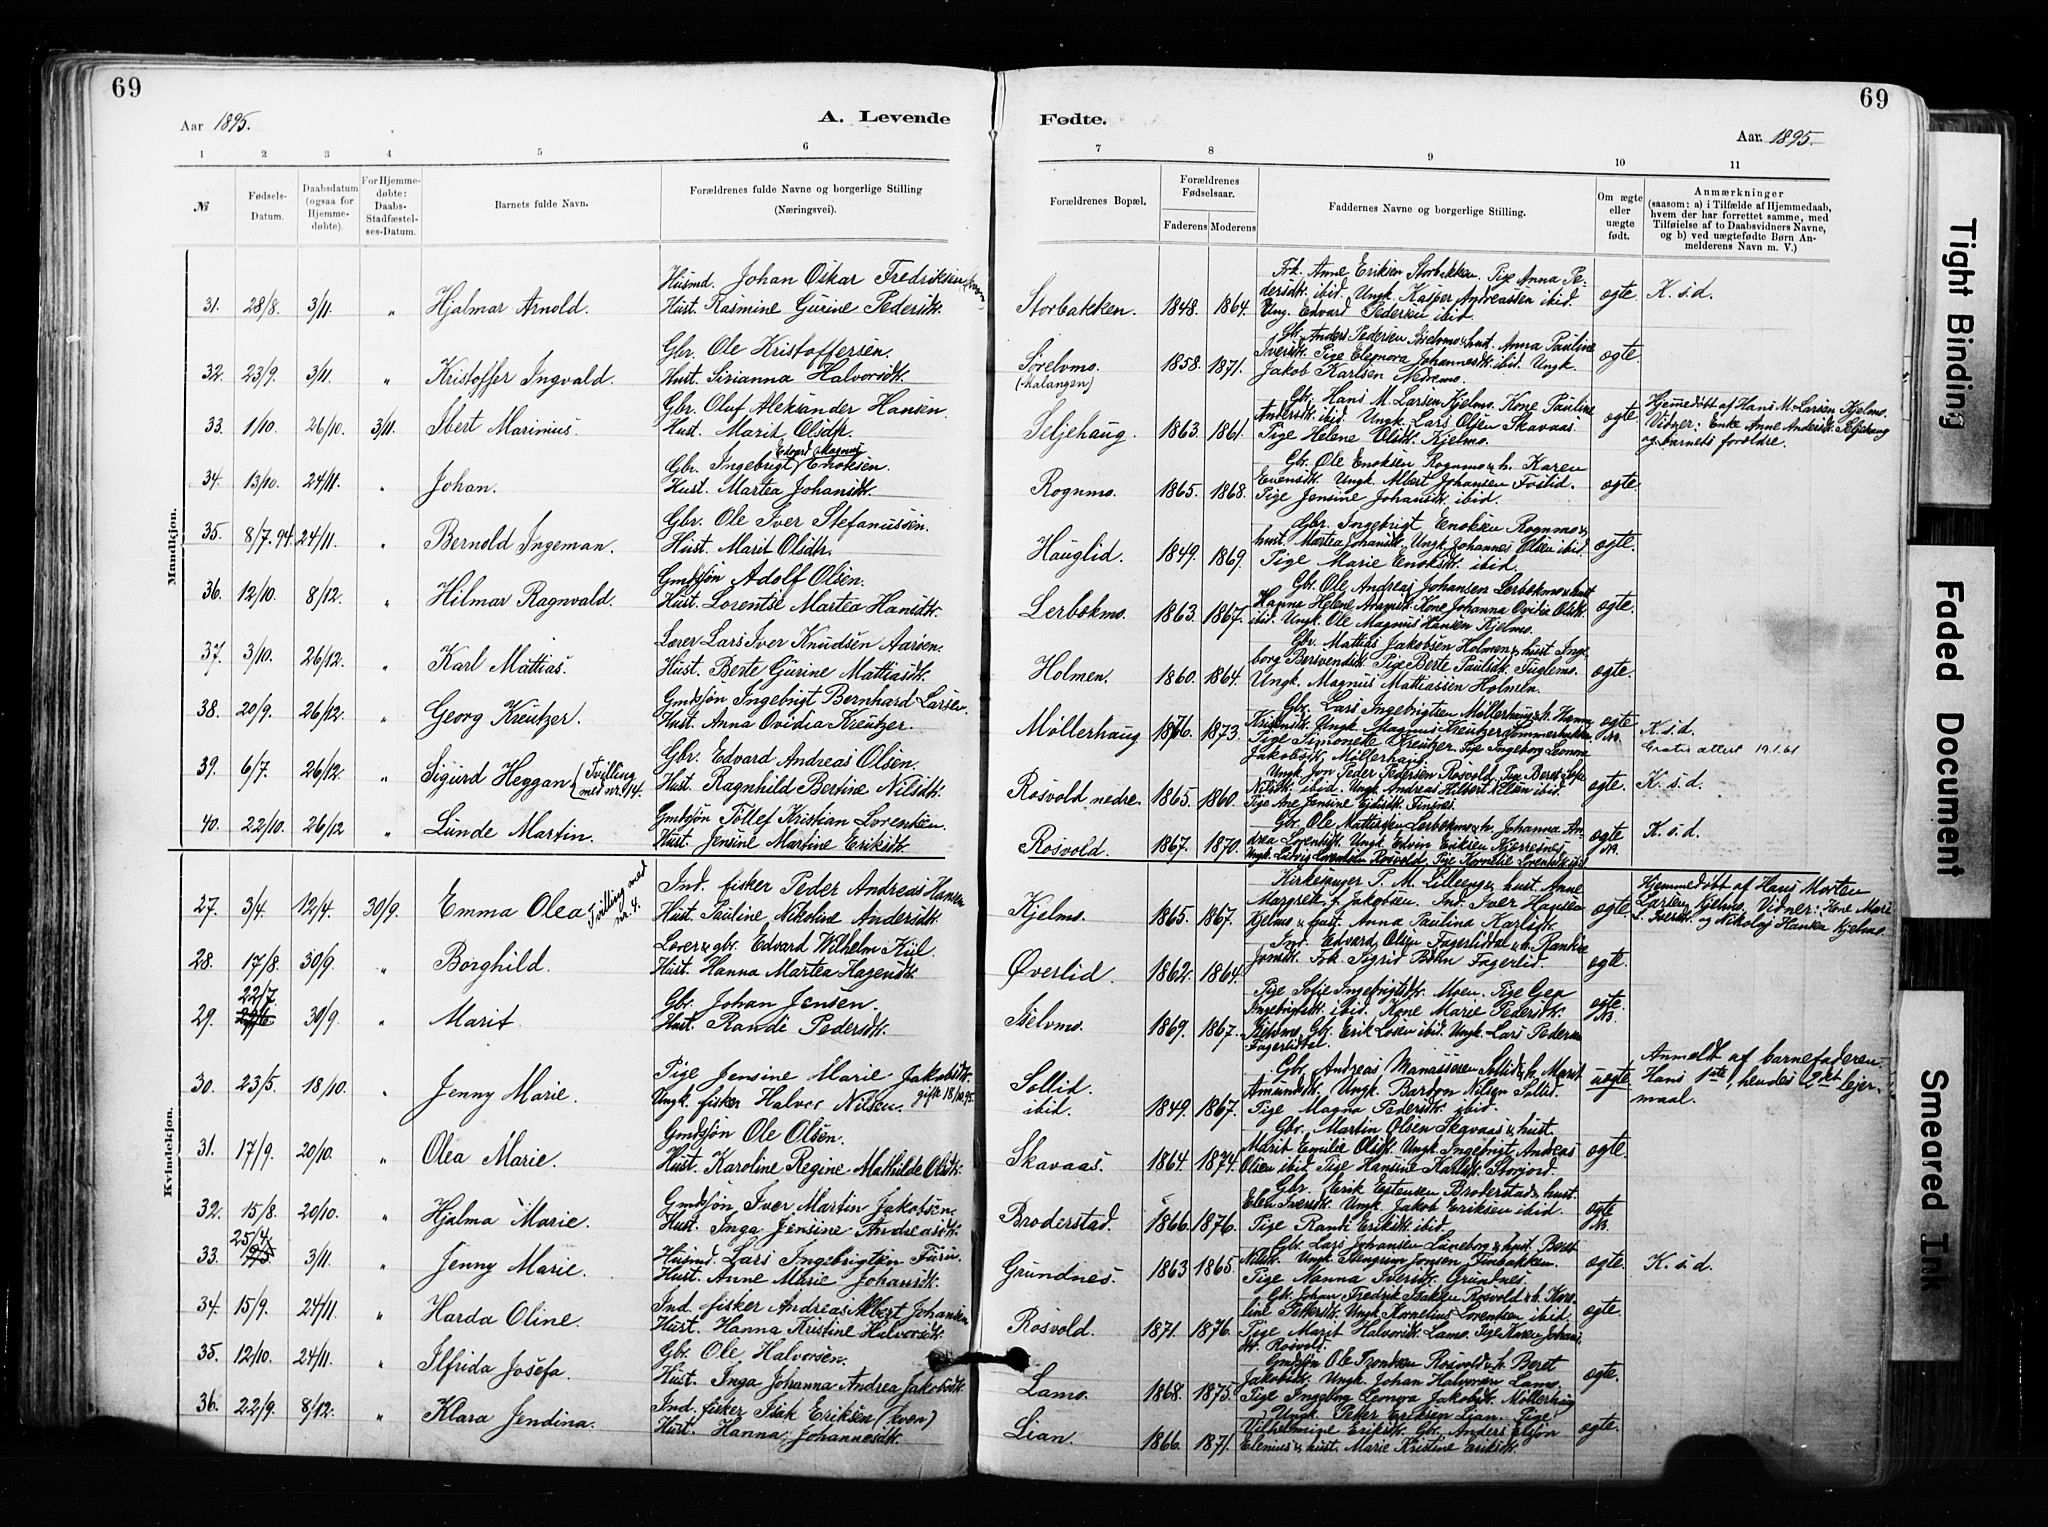 69
69
Aar 1895.
A. Levende
Fødte.
Aar. 1895.
1 2 3 4 5 6 7 8 9 10 11
№
Fødsels-
Datum.
Daabsdatum
(ogsaa for
Hjemme-
døbte).
For Hjemme-
døbte:
Daabs-
Stadfæstel-
ses-Datum.
Barnets fulde Navn.
Forældrenes fulde Navne og borgerlige Stilling
(Næringsvei).
Forældrenes Bopæl.
Forældrenes
Fødselsaar.
Faderens Moderens
Faddernes Navne og borgerlige Stilling.
Om ægte
eller
uægte
født.
Anmærkninger
(saasom: a) i Tilfælde af Hjemmedaab,
hvem der har forrettet samme, med
Tilføielse af to Daabsvidners Navne,
og b) ved uægtefødte Børn An-
melderens Navn m. V.)
Mandkjøn.
31. 28/8. 3/11. " Hjalmar Arnold.
Husmd. Johan Oskar Fredriksen
Hust. Rasmine Gurine Pedersdtr.
Storbakken. 1848. 1864.
Frk. Anne Eriksen Storbakken. Pige Anna Pe-
dersdtr. ibid. Ungk. Kasper Andreassen ibid.
Ung. Edvard Pedersen ibid.
ægte. K. s. d.
32. 23/9. 3/11. " Kristoffer Ingvald.
Gbr. Ole Kristoffersen.
Hust. Sirianna Halvorsdtr.
Sørelvmo.
(Malangen)
1858. 1871.
Gbr. Anders Pedersen hust. Anna Pauline
Iversdtr. Pige Eleonora Johannesdtr. ibid. Ungk.
Jakob Karlsen Nedremo.
ægte.
33. 1/10. 26/10. 3/11. Ibert Marinius.
Gbr. Oluf Aleksander Hansen.
Hust. Marit Olsdtr.
Seljehaug. 1863. 1861.
Gbr. Hans M. Larsen Kjelmo. Kone Pauline
Andersdtr. ibid. Ungk. Lars Olsen Skavaas
Pige Helene Olsdtr. Kjelmo.
ægte.
Hjemmedøbt af Hans M. Larsen Kjelmo.
Vidner: Enke Anne Andersdtr. Seljehaug
og barnets forældre.
34. 13/10. 24/11. " Johan.
Edvard Magnus
Gbr. Ingebrigt Enoksen.
Hust. Martea Johansdtr.
Rognmo. 1865. 1868.
Gbr. Ole Enoksen Rognmo & h. Karen
Evensdtr. Ungk. Albert Johansen Foslid.
Pige Jensine Johansdtr. ibid.
ægte.
35. 8/7.94. 24/11. " Bernold Ingeman.
Gbr. Ole Iver Stefanussen.
Hust. Marit Olsdtr.
Hauglid. 1849. 1869.
Gbr. Ingebrigt Enoksen Rognmo &
hust. Martea Johansdtr. Ungk. Johannes Olsen ibid.
Pige Marie Enoksdtr. ibid.
ægte.
36. 12/10. 8/12. " Hilmar Ragnvald.
Gmdssøn Adolf Olsen.
Hust. Lorentse Martea Hansdtr.
Lerbokmo. 1863. 1867.
Gbr. Ole Andreas Johansen Lerbokmo & hust
Hanna Helene Kone Johanna Ovidia Olsdtr.
ibid. Ungk. Ole Magnus Hansen Kjelmo.
ægte.
37. 3/10. 26/12. " Karl Mattias.
Lærer Lars Iver Knudsen Aarsen.
Hust. Berte Gurine Mattiasdtr.
Holmen. 1860. 1864.
Gbr. Mattias Jakobsen Holmen & hust Inge-
borg Bersvendsdtr. Pige Berte Paulsdtr. Fuglemo.
Ungk. Magnus Mattiassen Holmen.
ægte.
38. 20/9. 26/12. " Georg Kreutzer.
Gmdssøn Ingebrigt Bernhard Larsen
Hust. Anna Ovidia Kreutzer.
Møllerhaug 1876. 1873.
Gbr. Lars Ingebrigtsen Møllerhaug & h. Hanna
Kristensdtr. Ungk. Magnus Kreutzer Sommerbakken
Pige Simonette Kreutzer. Pige Ingeborg Leonora
Jakobsdtr. Møllerhaug.
ægte NB.
K. s. d.
Gratis attest 19.1.61
39. 6/7. 26/12. " Sigurd Heggan (Tvilling
med nr. 14.
Gbr. Edvard Andreas Olsen.
Hust. Ragnhild Bertine Nilsdtr.
Rosvold nedre. 1865. 1860.
Ungk. Jon Peder Pedersen Rosvold. Pige Beret
Nilsdtr. ibid. Ungk. Andreas Hilbert Nilsen ibid.
Pige Ane Jensine Finnes.
ægte. K. s. d.
40. 22/10. 26/12 " Lunde Martin.
Gmdssøn Tollef Kristian Lorentsen.
Hust. Jensine Martine Eriksdtr.
Rosvold. 1867. 1870.
Gbr. Ole Mattissen Lerbokmo & h. Johanna An-
drea Lorentsdtr. Ungk. Edvin Eriksen Kjerresnes
Ungk. Ludvig Lorentsen Rosvold. Pige Kornelie Lorentsdtr. ibid
ægte NB. K. s. d.
Kvindekjøn.
27. 3/4. 12/4. 30/9. Emma Olea Tvilling med
nr. 4.
Ind. fisker Peder Andreas Hansen
Hust. Pauline Nikoline Andersdtr.
Kjelmo. 1865. 1867.
Kirkesanger P. M. Lilleeng & hust. Anne
Margrete f. Jakobsen. Ind. Iver Hansen
Kjelmo & hust. Anna Paulina Karlsdtr.
ægte
Hjemmedøbt af Hans Morten
Larsen Kjelmo. Vidner: Kone Marie
S. Iversdtr. og Nikolai Hansen Kjelmo.
28. 17/8. 30/9. " Borghild.
Lærer & gbr. Edvard Wilhelm Kiil
Hust. Hanna Martea Hagensdtr.
Øverlid. 1862. 1864.
Ind. Edvard Olsen Fagerliddal & h. Randia
Jonsdtr. Frk. Sigrid Bohn Fagerlid.
ægte.
29. 22/7. 30/9. " Marit.
Gbr. Johan Jensen.
Hust. Randi Pedersdtr.
1869. 1867.
Pige Sofie Ingebrigtsdtr. Moen. Pige Gea
Ingebrigtsdtr. ibid. Kone Marie Pedersdtr.
Gbr. Erik Losen ibid. Ungk. Lars Pedersen
Fagerlidtal.
ægte. NB.
30. 23/5. 18/10. " Jenny Marie.
Pige Jensine Marie Jakobsdtr.
Ungk. fisker Halvor Nilsen. gift 18/10.95.
Sollid.
ibid.
1849. 1867.
Gbr. Andreas Manassesen Sollid & h. Marit
Amundsdtr. Ungk. Bardon Nilsen Sollid.
Pige Magna Pedersdtr. ibid.
uægte
Anmeldt af barnefaderen.
Hans 1ste, hendes 2det leier-
maal.
31. 17/9. 20/10. " Olea Marie.
Gmdssøn Ole Olsen.
Hust. Karoline Regine Mathilde Olsdtr.
Skavaas. 1864. 1874.
Gbr. Martin Olsen Skavaas & hust.
Marit Emilie Olsdtr. Ungk. Ingebrigt Andreas
Olsen ibid. Pige Hansine Karlsdtr. Storjord.
ægte.
32. 15/8. 20/10. " Hjalma Marie.
Gmdssøn Iver Martin Jakobsen.
Hust. Inga Jensine Andreasdtr.
Broderstad. 1866. 1876.
Gbr. Erik Estensen Broderstad & hust.
Elen Iversdtr. Ungk. Jakob Eriksen ibid.
Pige Randi Eriksdtr. ibid.
ægte NB.
33. 25/4. 3/11. " Jenny Marie.
Husmd. Lars Ingebrigtsen Furu.
Hust. Anne Marie Johansdtr.
Grundnes. 1863 1865.
Gbr. Lars Johansen Luneborg & hust. Beret
Nilsdtr. Ungk. Stengrim Jonsen Finbakken.
Pige Nanna Iversdtr. Grundnes.
ægte. K. s. d.
34. 15/9. 24/11. " Harda Oline.
Ind. fisker Andreas Albert Johansen
Hust. Hanna Kristine Halvorsdtr.
Rosvold. 1871. 1876.
Gbr. Johan Fredrik Isaksen Rosvold & h. Karo-
line Pettersdtr. Ungk. Kornelius Lorentsen ibid.
Pige Marit Halvorsdtr. Lamo. Pige Karen Johans-
dtr. Rosvold.
ægte.
35. 12/10. 24/11. " Ilfrida Josefa.
Gbr. Ole Halvorsen.
Hust. Inga Johanna Andrea Jakobsdtr.
Lamo. 1868. 1875.
Gmdssøn Ole Trondsen Rosvold & h. Beret
Jakobsdtr. Ungk. Johan Halvorsen Lamo.
Pige Ingeborg Leonora Jakobsdtr. Møllerhaug
ægte.
36. 22/9. 8/12. " Klara Jendina.
Ind. fisker Isak Eriksen (kven)
Hust. Hanna Johannesdtr.
Lian. 1866. 1871.
Ungk. Peter Eriksen Lian. Pige
Vilhelmine Eriksdtr. Gbr. Anders Elison
Elenius & hust. Marie Kristine Eriksdtr.
ægte.
Tight Binding
Faded Document
Smeared Ink